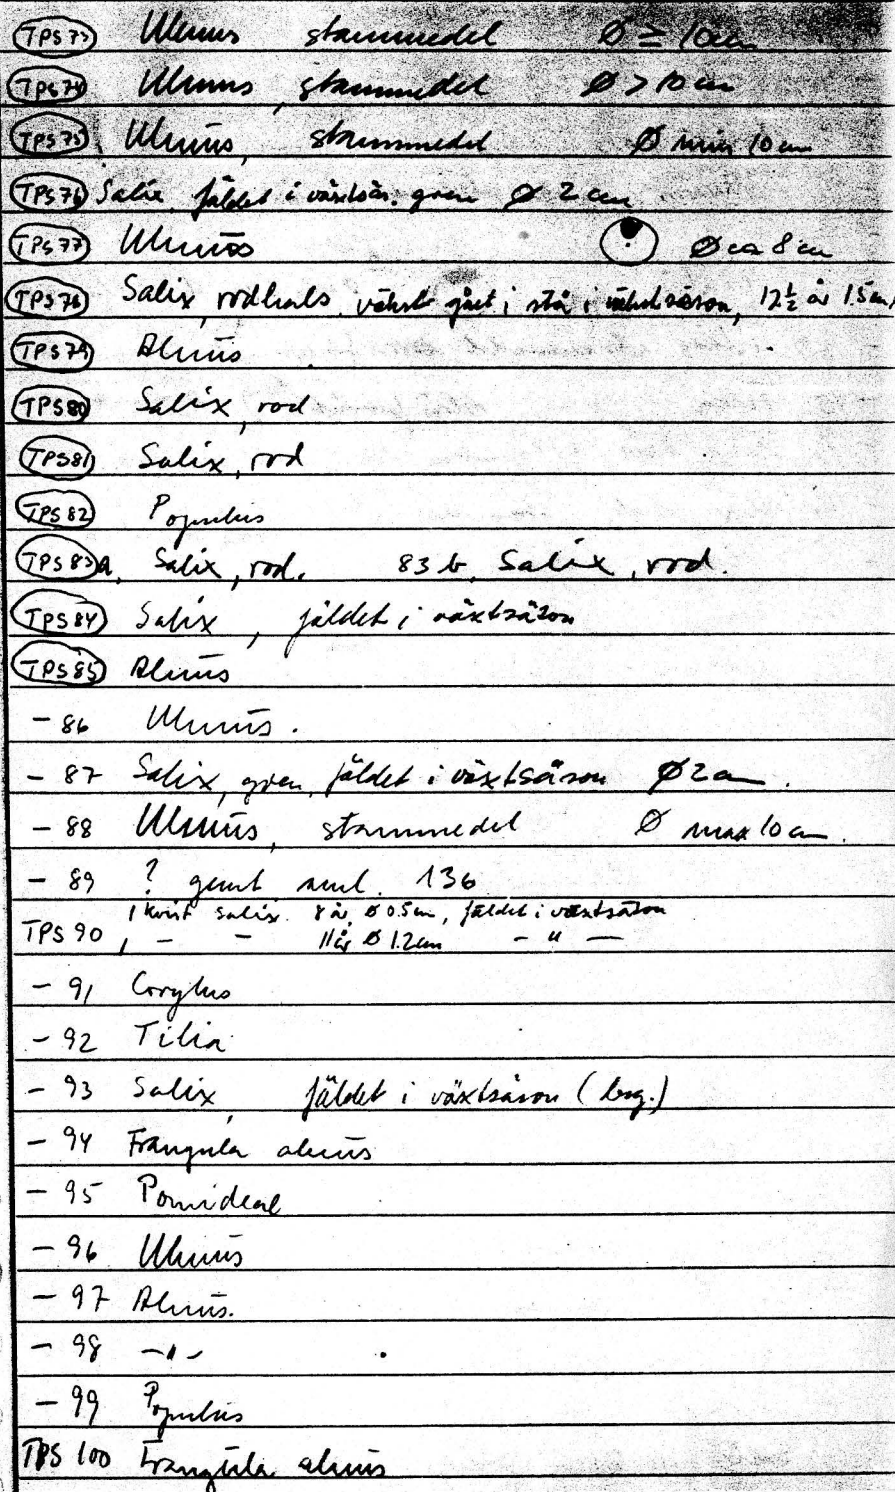 TPS 73 Ulmus stammedel Ø ≥ 10cm
TPS 74 Ulmus, stammedel Ø > 10 cm
TPS 75 Ulmus, stammedel Ø min 10 cm
TPS 76 Salix, fäldet i växtsäs. gren Ø 2 cm
TPS 77 Ulmus Ø ca 8 cm
TPS 78 Salix, rodhals, gået i stå i 12½ år 1.5cm
TPS 79 Alnus
TPS 80 Salix, rod
TPS 81 Salix, rod
TPS 82 Populus
TPS 83 a, Salix, rod. 83 b, Salix, rod.
TPS 84 Salix, fäldet i växtsäson
TPS 85 Alnus
- 86 Ulmus.
- 87 Salix, gren, fäldet i växtsäson Ø 2 cm.
- 88 Ulmus, stammedel Ø max 10 cm.
- 89 ? gemt 136
1 kvist Salix. 8 år, Ø 0.5 cm, fäldet i växtsäson
TPS 90 1 - - 11 år Ø 1.2cm - " -
- 91 Corylus
- 92 Tilia
- 93 Salix, fäldet i växtsäson (beg.)
- 94 Frangula alnus
- 95 Pomideae
- 96 Ulmus
- 97 Alnus.
- 98 -"-
- 99 Populus
TPS 100 Frangula alnus